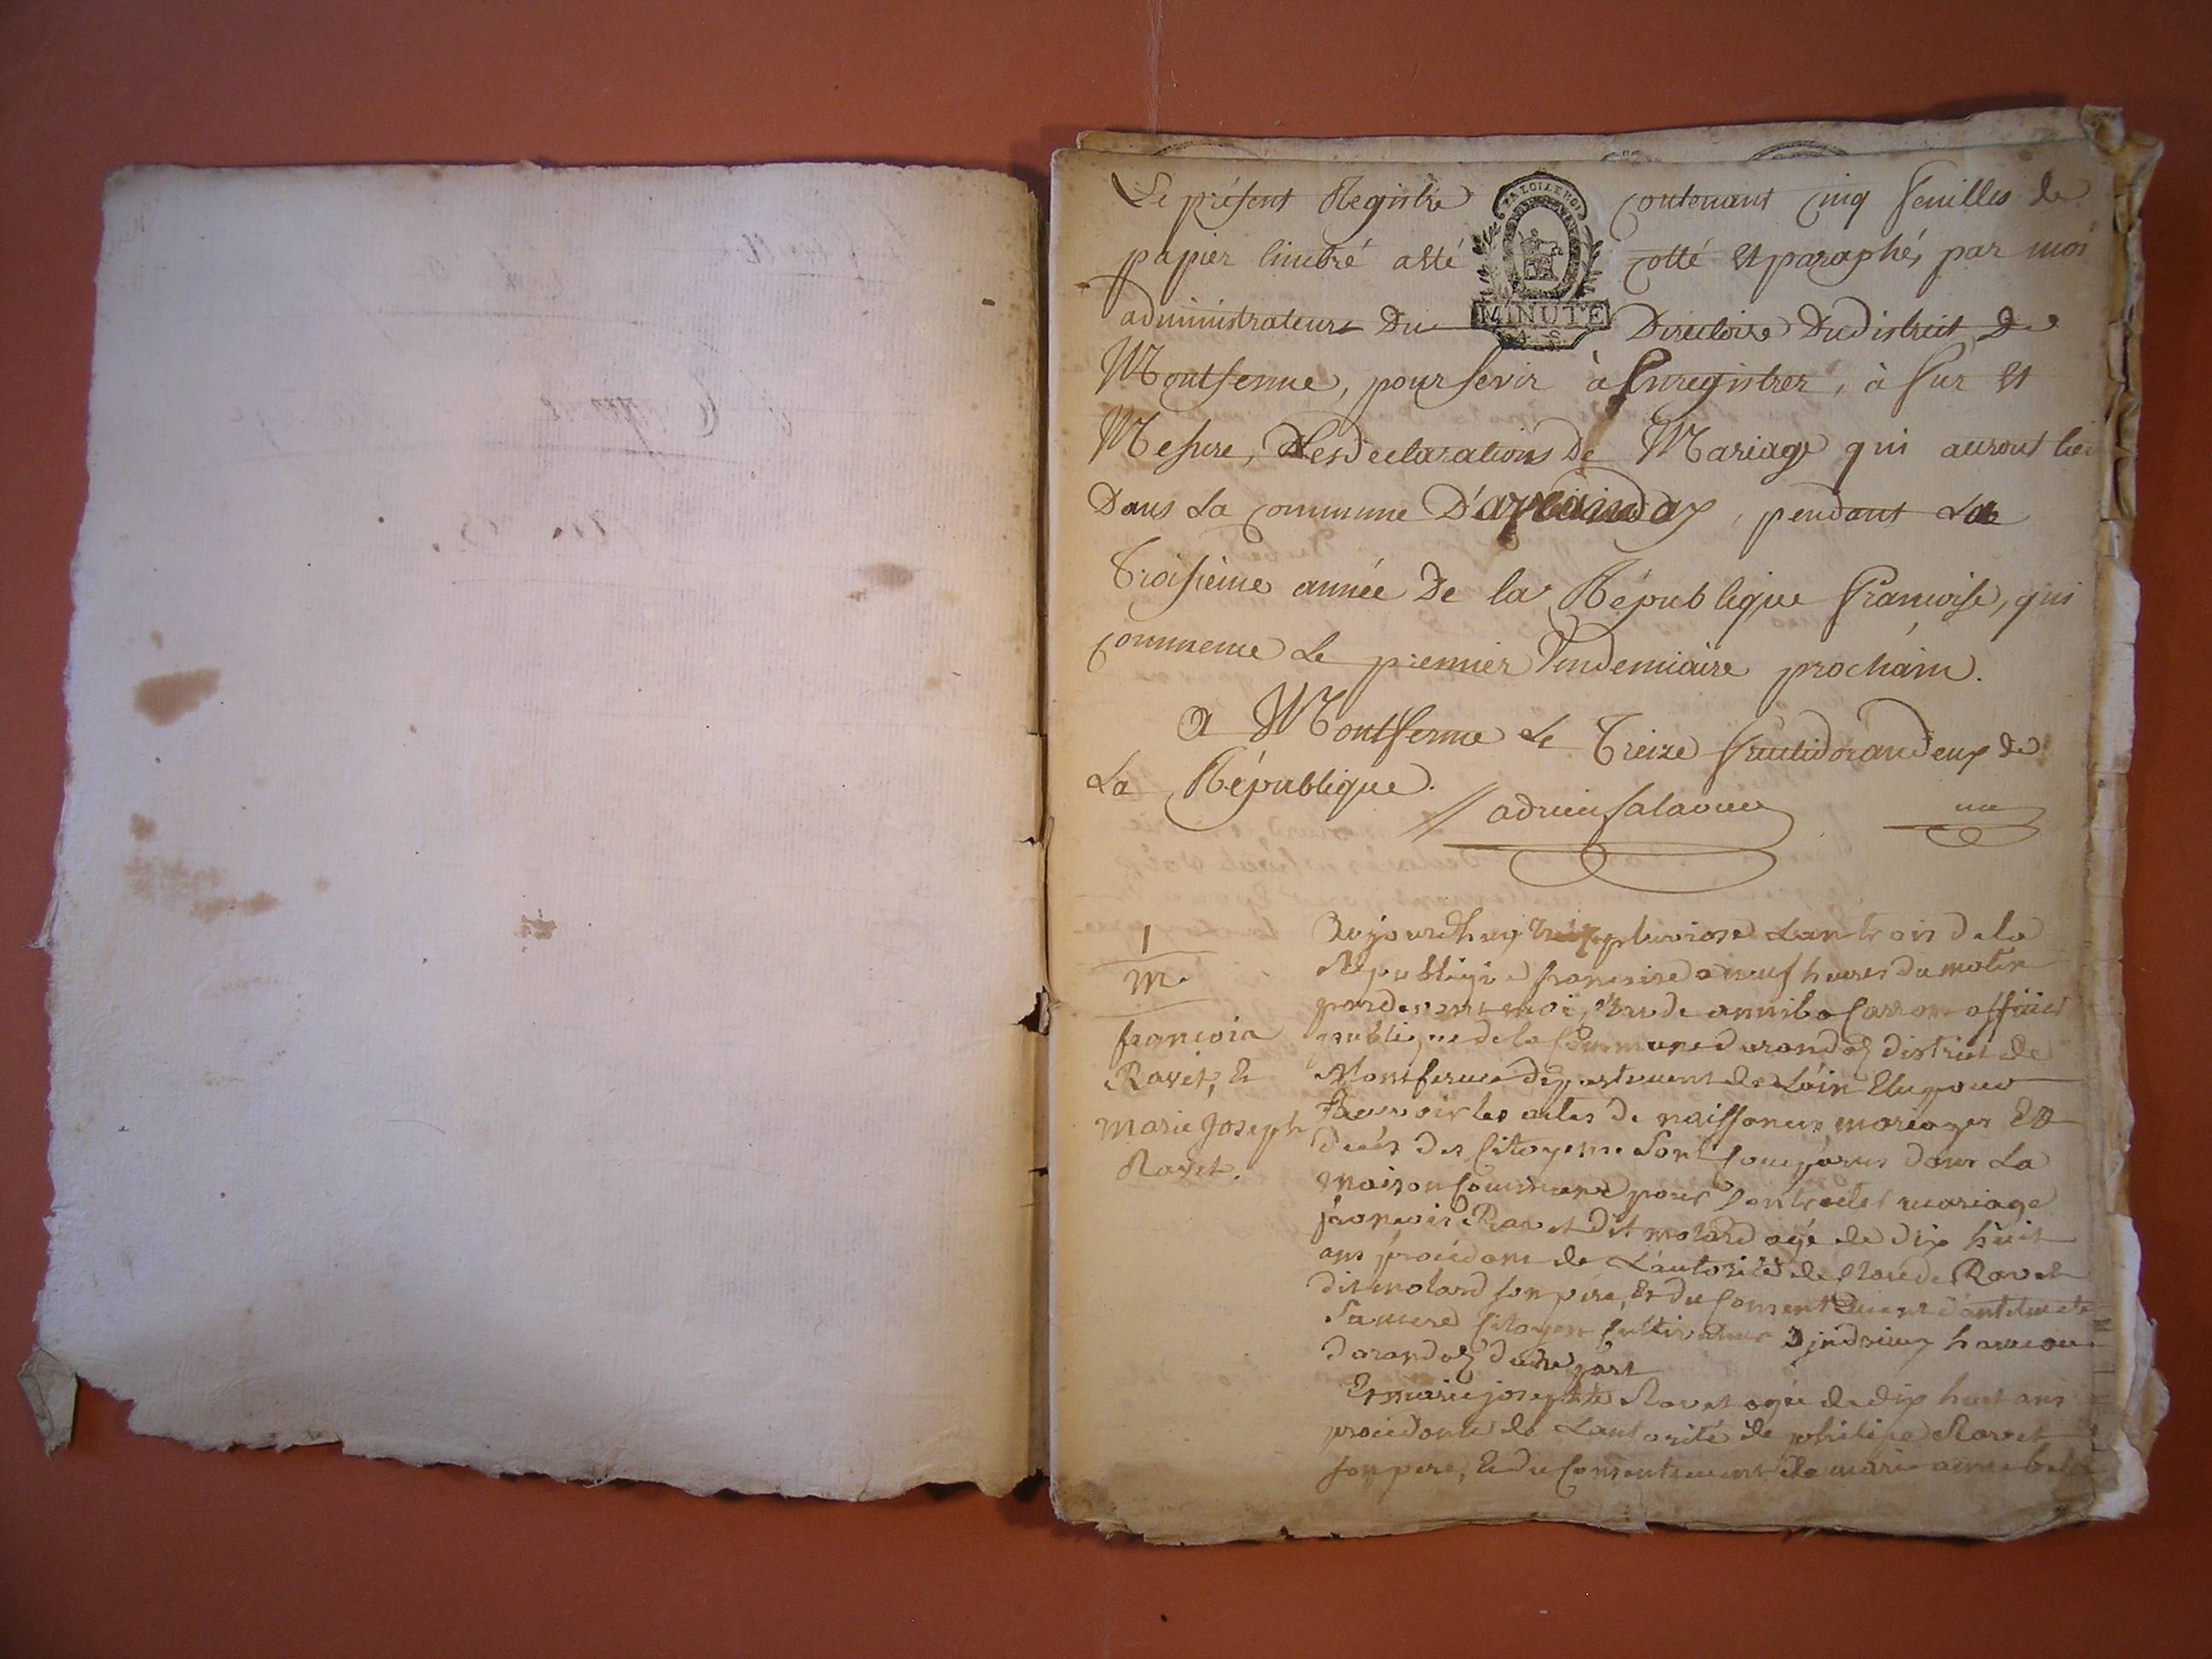 Le présent Registre contenant cinq feuilles de
papier timbré a eté cotté et paraphé, par moi
LA LOI LE ROI
MINUTE
administrateur du Directoire du district de
Montferme, pour servir à Enregistrer, à fur et
Mesure, les declarations de Mariage qui auront lieu
Dans la commune D' pendant la
Troisième année de la République françoise, qui
commence le premier Vendemiaire prochain.
a Montferme le Treize fructidor an deux de
La République.
1
m.
françois
Ravet, &
Marie Joseph
Ravet.
Aujourdhuy pluviose Lan trois de la
République francaise a neuf heures du matin
pardevant moi, officier
publique de la Commune darandas district de
Montferme département de Lain Elu pour
Recevoir les actes de naissance mariages Et
décès des Citoyens Sont Comparus dans La
maison Commune pour Contracter mariage
françois Ravet dit molard agé de dix huit
ans procédant de L'autorité de Claude Ravet
dit molard son père, Et du Consentement
Sa mere Citoyen Cultivateur hameau
darandas dune part
Et marie josephte Ravet agée de dix huit ans
procédante de Lautorité de philipe Ravet
son pere, & du Consentement de marie